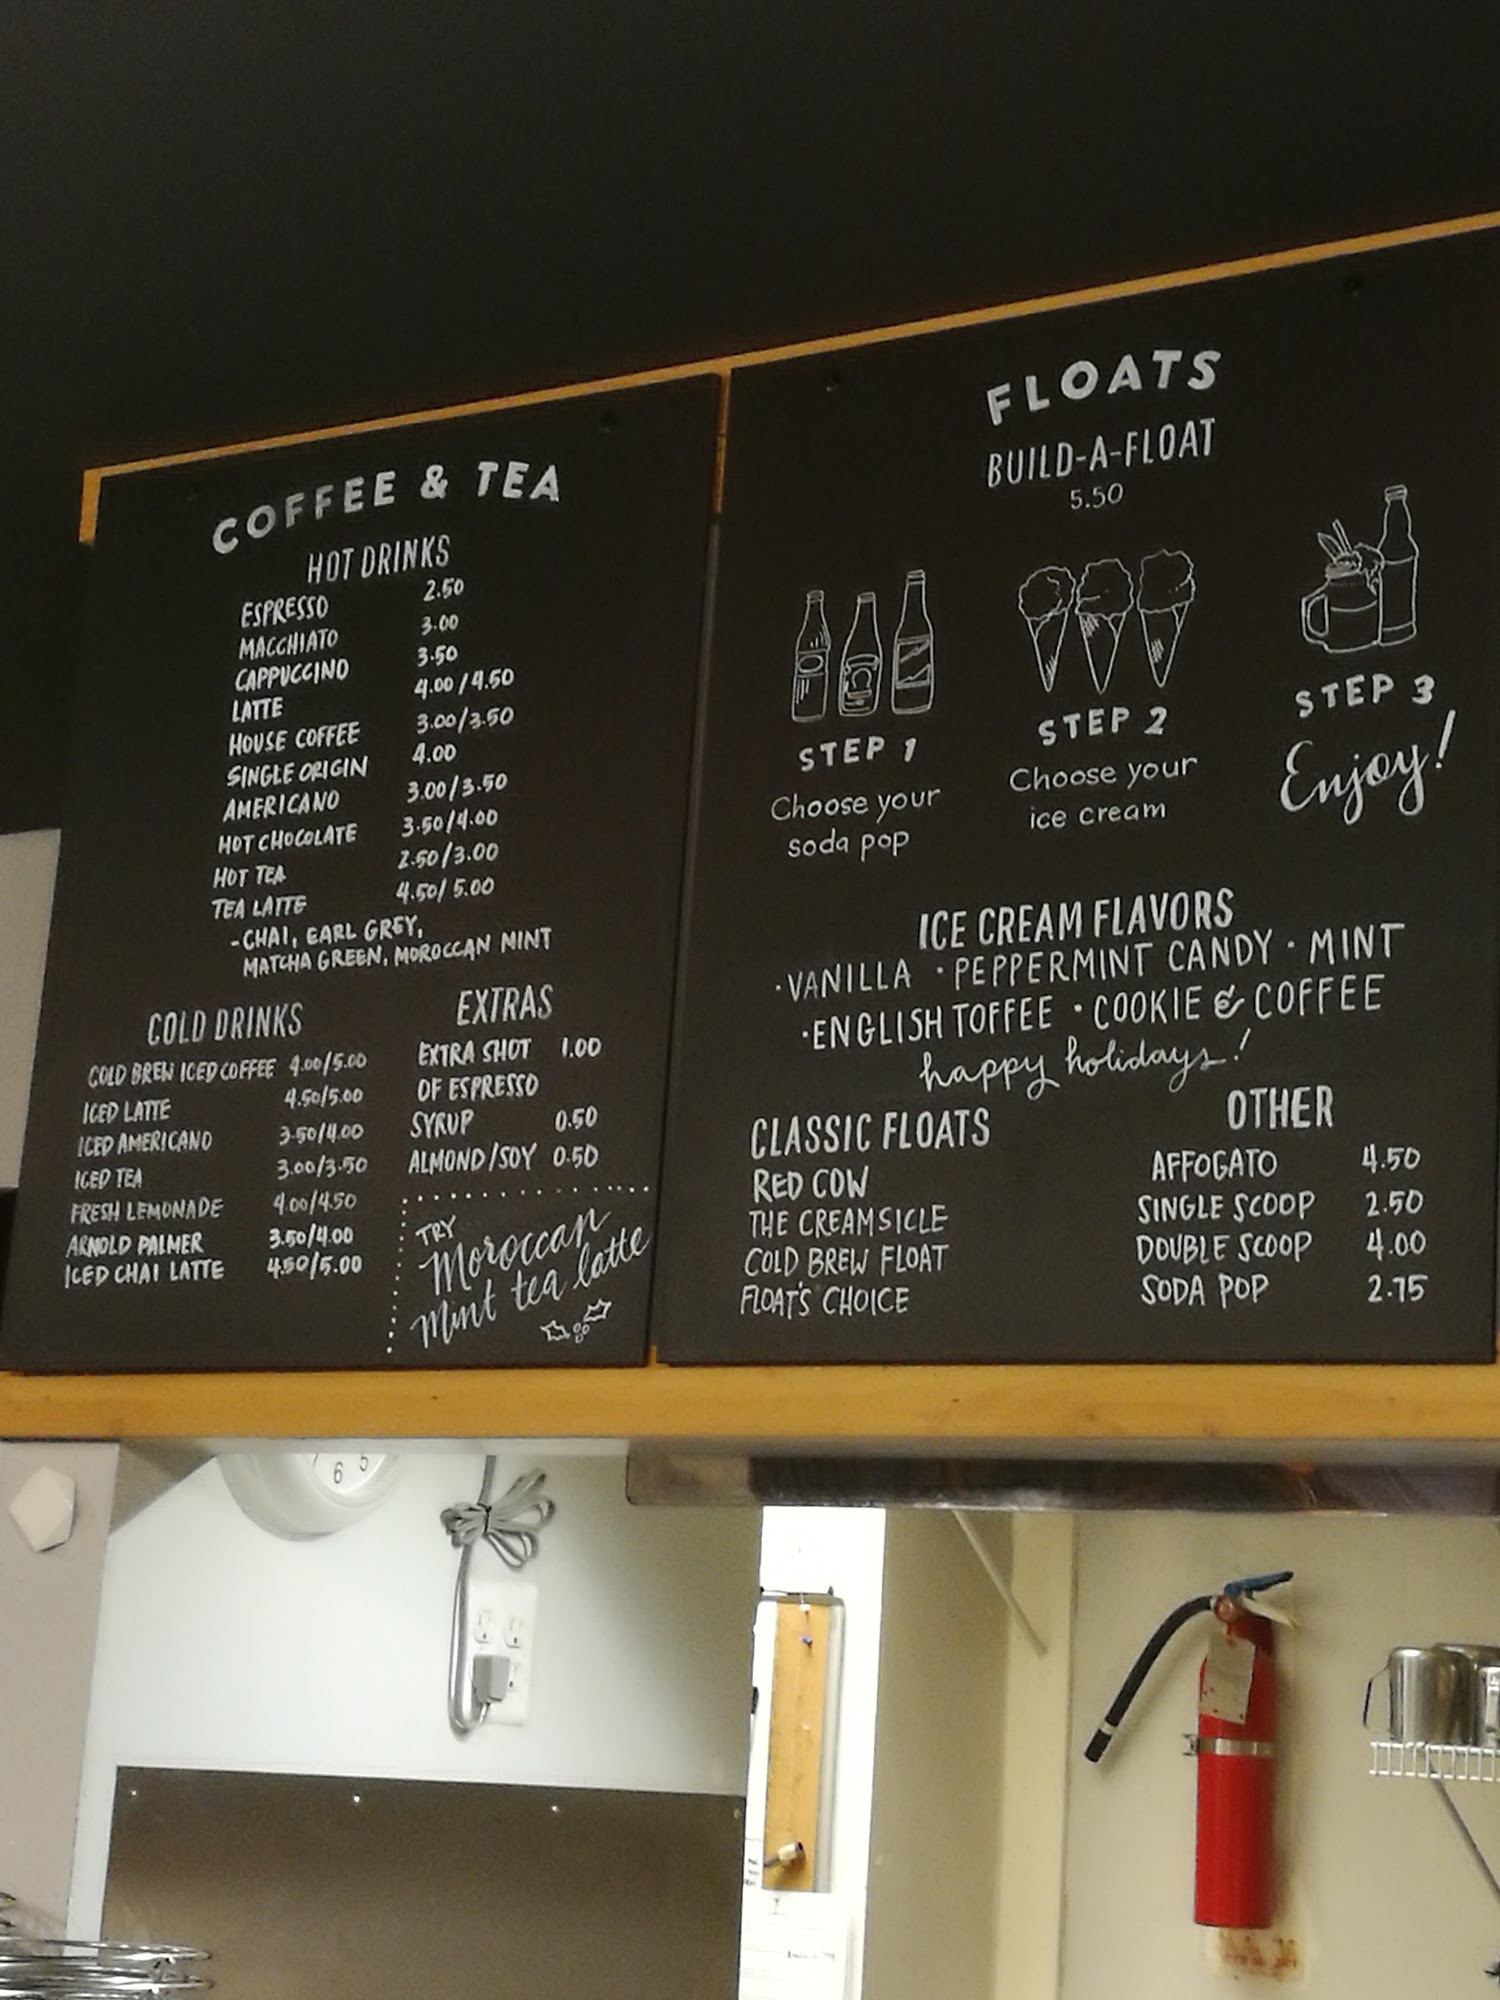 COFFEE & TEA
HOT DRINKS
ESPRESSO 2.50
MACCHIATO 3.00
CAPPUCCINO 3.50
LATTE 4.00/4.50
HOUSE COFFEE 3.00/3.50
SINGLE ORIGIN 4.00
AMERICANO 3.00/3.50
HOT CHOCOLATE 3.50/4.00
HOT TEA 2.50/3.00
TEA LATTE 4.50/5.00
-CHAI, EARL GREY,
MATCHA GREEN, MOROCCAN MINT
COLD DRINKS
COLD BREW ICED COFFEE 4.00/5.00
ICED LATTE 4.50/5.00
ICED AMERICANO 3.50/4.00
ICED TEA 3.00/3.50
FRESH LEMONADE 4.00/4.50
ARNOLD PALMER 3.50/4.00
ICED CHAI LATTE 4.50/5.00
EXTRAS
EXTRA SHOT 1.00
OF ESPRESSO
SYRUP 0.50
ALMOND/SOY 0.50
TRY
Moroccan
Mint tea latte
FLOATS
BUILD-A-FLOAT
5.50
STEP 1
Choose your
soda pop
STEP 2
Choose your
ice cream
STEP 3
Enjoy!
ICE CREAM FLAVORS
·VANILLA ·PEPPERMINT CANDY ·MINT
·ENGLISH TOFFEE ·COOKIE & COFFEE
happy holidays!
CLASSIC FLOATS
RED COW
THE CREAMSICLE
COLD BREW FLOAT
FLOAT'S CHOICE
OTHER
AFFOGATO 4.50
SINGLE SCOOP 2.50
DOUBLE SCOOP 4.00
SODA POP 2.75
6 5